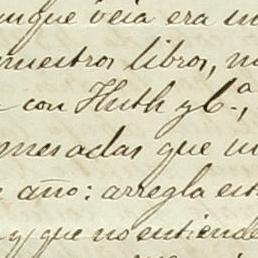 unque veia era un
nuestros libros, n
con Huth y Cª,
mesadas que u
año: arregla est
y que no entiende